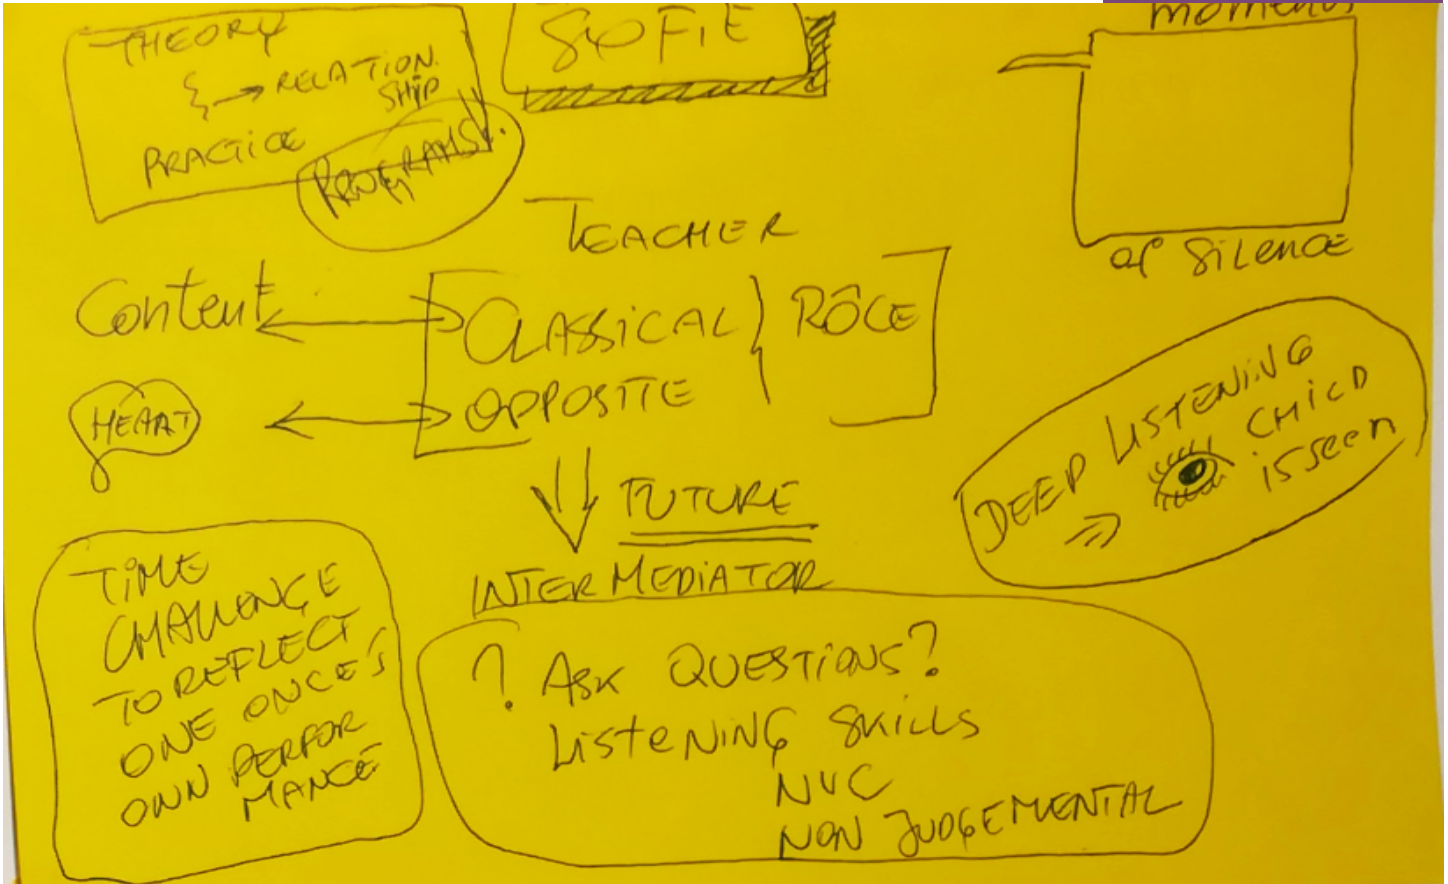 THEORY
→ RELATION
SHIP
PRACTICE
PROGRAMS
SOFIE
moments
of SiLENCE
TEACHER
Content
CLASSICAL
RÔLE
OPPOSITE
HEART
FUTURE
INTERMEDIATOR
DEEP LISTENING
⇒ CHILD
is seen
TiME
CHALLENGE
TO REFLECT
ONE ONCE'S
OWN PERFOR
MANCE
? ASK QUESTIONS?
LISTENING SKILLS
NVC
NON JUDGEMENTAL